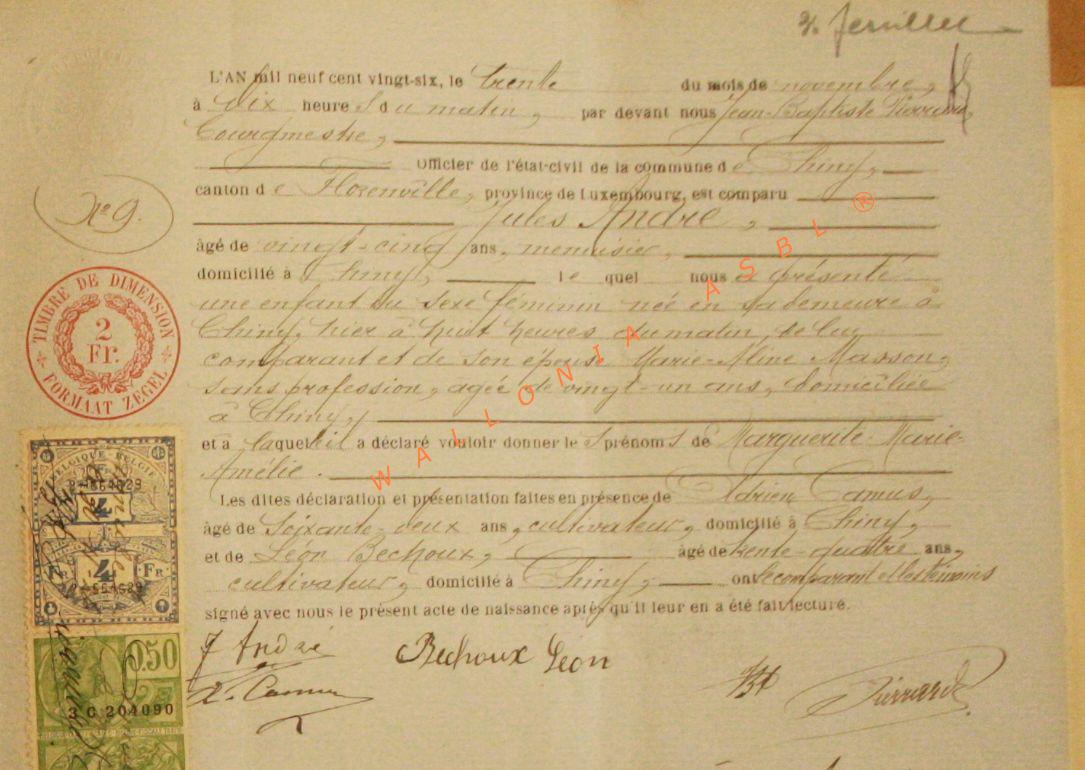 3e feuillet
L'AN mil neuf cent vingt-six, le trente du mois de novembre,
à dix heures du matin, par devant nous Jean-Baptiste Pierrard,
Bourgmestre,
Officier de l'état-civil de la commune de Chiny,
canton de Florenville, province de Luxembourg, est comparu
No 9.
Jules André,
âgé de vingt-cinq ans, menuisier,
domicilié à Chiny, lequel nous a présenté
une enfant du sexe féminin née en sa demeure à
Chiny, hier à huit heures du matin, de lui
comparant et de son épouse Marie-Aline Masson,
sans profession, âgée de vingt-un ans, domiciliée
à Chiny,
et à laquelle il a déclaré vouloir donner les prénoms de Marguerite-Marie-
Amélie.
Les dites déclaration et présentation faites en présence de Adrien Camus,
âgé de soixante-deux ans, cultivateur, domicilié à Chiny,
et de Léon Bechoux, âgé de trente-quatre ans,
cultivateur, domicilié à Chiny, ont le comparant et les témoins
signé avec nous le présent acte de naissance après qu'il leur en a été fait lecture.
J André
Bechoux Léon
A. Camus
Pierrard
TIMBRE DE DIMENSION
2
Fr.
FORMAAT ZEGEL
BELGIQUE BELGIË
4
4
Fr
0.50
3 C 204090
WALLONIA ASBL ®